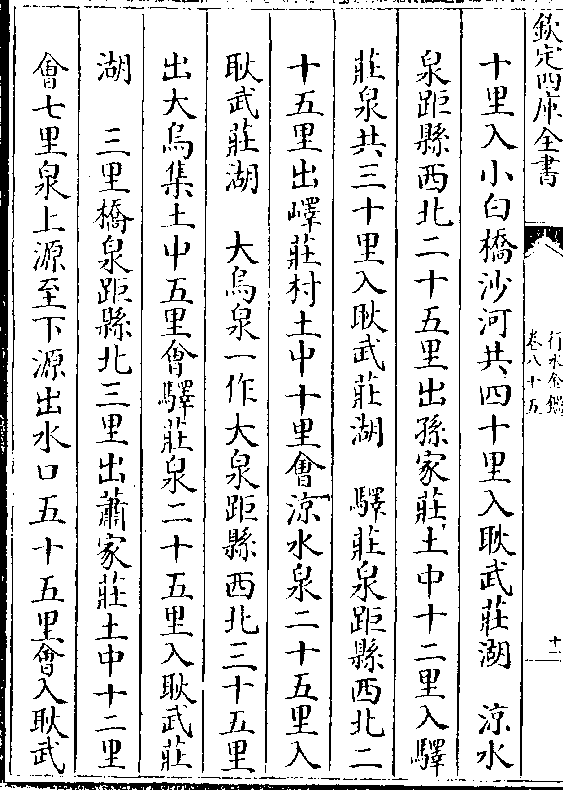 欽定四庫全書
行水金鑑
卷八十五
十二
十里入小白橋沙河共四十里入耿武莊湖　涼水
泉距縣西北二十五里出孫家莊土中十二里入驛
莊泉共三十里入耿武莊湖　驛莊泉距縣西北二
十五里出嶧莊村土中十里會涼水泉二十五里入
耿武莊湖　大烏泉一作大泉距縣西北三十五里
出大烏集土中五里會驛莊泉二十五里入耿武莊
湖　三里橋泉距縣北三里出蕭家莊土中十二里
會七里泉上源至下源出水口五十五里會入耿武